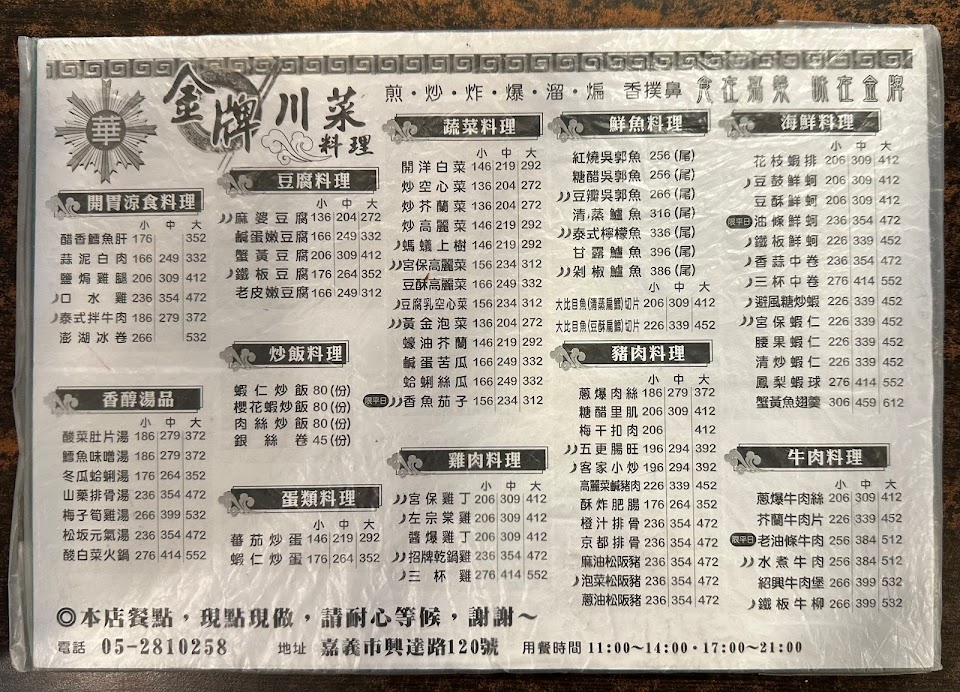 華
金牌川菜料理
煎・炒・炸・爆・溜・煸 香撲鼻 食在嘉義 味在金牌
開胃涼食料理
小 中 大
醋香鱈魚肝 176 352
蒜泥白肉 166 249 332
鹽焗雞腿 206 309 412
口水雞 236 354 472
泰式拌牛肉 186 279 372
澎湖冰卷 266 532
香醇湯品
小 中 大
酸菜肚片湯 186 279 372
鱈魚味噌湯 186 279 372
冬瓜蛤蜊湯 176 264 352
山藥排骨湯 236 354 472
梅子筍雞湯 266 399 532
松坂元氣湯 236 354 472
酸白菜火鍋 276 414 552
豆腐料理
小 中 大
麻婆豆腐 136 204 272
鹹蛋嫩豆腐 166 249 332
蟹黃豆腐 206 309 412
鐵板豆腐 176 264 352
老皮嫩豆腐 166 249 312
炒飯料理
蝦仁炒飯 80 (份)
櫻花蝦炒飯 80 (份)
肉絲炒飯 80 (份)
銀絲卷 45 (份)
蛋類料理
小 中 大
蕃茄炒蛋 146 219 292
蝦仁炒蛋 176 264 352
蔬菜料理
小 中 大
開洋白菜 146 219 292
炒空心菜 136 204 272
炒芥蘭菜 136 204 272
炒高麗菜 146 219 292
螞蟻上樹 146 219 292
宮保高麗菜 156 234 312
豆酥高麗菜 166 249 332
豆腐乳空心菜 156 234 312
黃金泡菜 136 204 272
蠔油芥蘭 146 219 292
鹹蛋苦瓜 166 249 332
蛤蜊絲瓜 166 249 332
限平日 香魚茄子 156 234 312
雞肉料理
小 中 大
宮保雞丁 206 309 412
左宗棠雞 206 309 412
醬爆雞丁 206 309 412
招牌乾鍋雞 236 354 472
三杯雞 276 414 552
鮮魚料理
紅燒吳郭魚 256 (尾)
糖醋吳郭魚 256 (尾)
豆瓣吳郭魚 266 (尾)
清蒸鱸魚 316 (尾)
泰式檸檬魚 336 (尾)
甘露鱸魚 396 (尾)
剁椒鱸魚 386 (尾)
小 中 大
大比目魚(清蒸扁鱈)切片 206 309 412
大比目魚(豆酥扁鱈)切片 226 339 452
豬肉料理
小 中 大
蔥爆肉絲 186 279 372
糖醋里肌 206 309 412
梅干扣肉 206 412
五更腸旺 196 294 392
客家小炒 196 294 392
高麗菜鹹豬肉 226 339 452
酥炸肥腸 176 264 352
橙汁排骨 236 354 472
京都排骨 236 354 472
麻油松阪豬 236 354 472
泡菜松阪豬 236 354 472
蔥油松阪豬 236 354 472
海鮮料理
小 中 大
花枝蝦排 206 309 412
豆鼓鮮蚵 206 309 412
豆酥鮮蚵 206 309 412
限平日 油條鮮蚵 236 354 472
鐵板鮮蚵 226 339 452
香蒜中卷 236 354 472
三杯中卷 276 414 552
避風糖炒蝦 226 339 452
宮保蝦仁 226 339 452
腰果蝦仁 226 339 452
清炒蝦仁 226 339 452
鳳梨蝦球 276 414 552
蟹黃魚翅羹 306 459 612
牛肉料理
小 中 大
蔥爆牛肉絲 206 309 412
芥蘭牛肉片 226 339 452
限平日 老油條牛肉 256 384 512
水煮牛肉 256 384 512
紹興牛肉堡 266 399 532
鐵板牛柳 266 399 532
◎本店餐點，現點現做，請耐心等候，謝謝～
電話 05-2810258 地址 嘉義市興達路120號 用餐時間 11:00～14:00・17:00～21:00